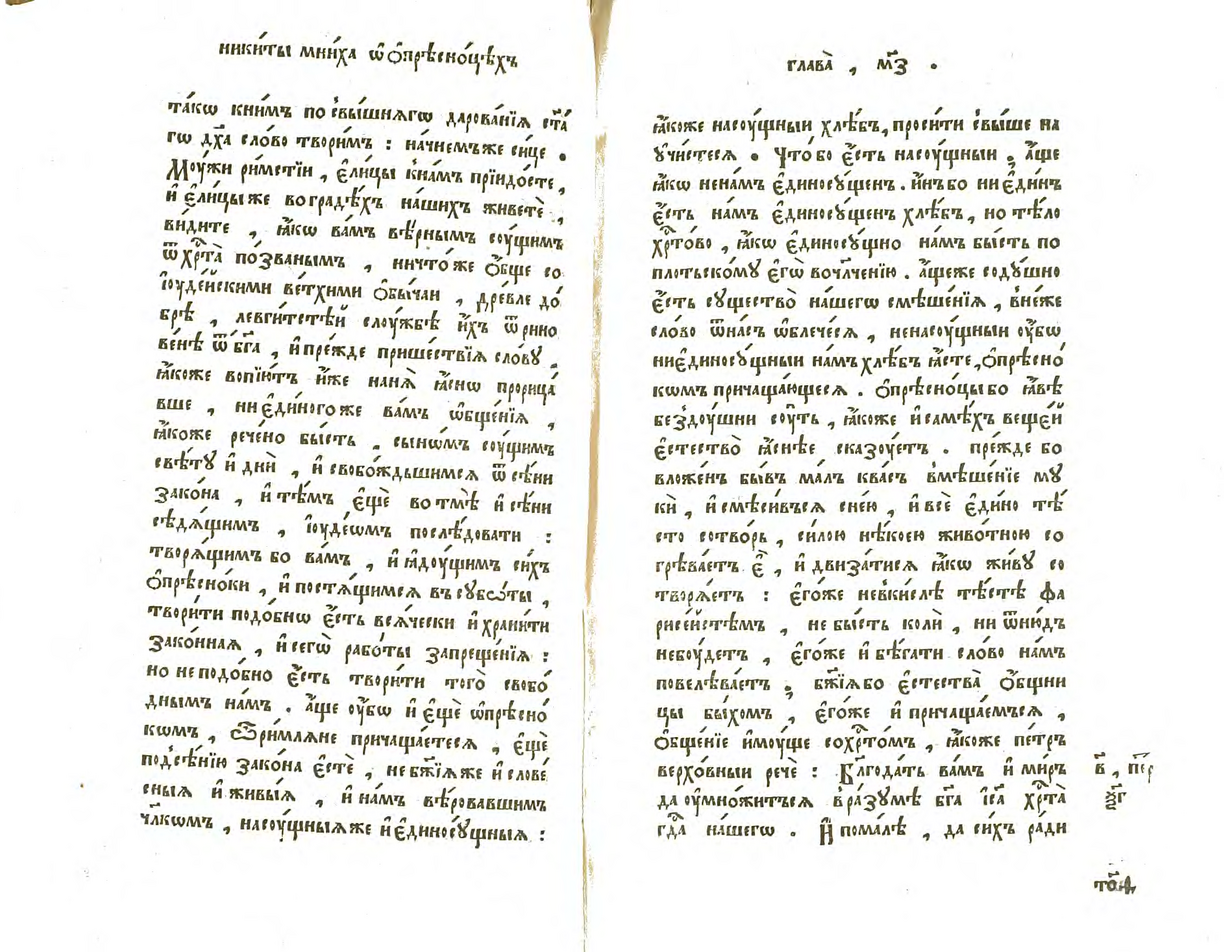 ники́ты мни́ха ѡ҆ ѻ҆прѣсно́цѣхъ
та́кѡ кни́мъ по свы́шнягѡ дарова́нїѧ ст҃а́
гѡ дх҃а сло́во твори́мъ : на́чнемъже си́це .
Моу́жи ри́мстїи , є҆ли́цы кна́мъ прїидо́сте ,
и҆ є҆ли́цыже воградѣ́хъ на́шихъ живетѐ ,
ви́дите , ꙗ҆́кѡ ва́мъ вѣ́рнымъ соу́щимъ
ѿ хр҃та̀ по́званымъ , ничто́же ѻ҆́бще со
і҆оуде́искими ве́тхими ѻ҆бы́чаи , дре́вле до́
брѣ , левги́тстѣй слоу́жбѣ и҆́хъ ѿри́но
венѣ ѿ бг҃а , и҆ пре́жде прише́ствїѧ сло́вꙋ ,
ꙗ҆́коже вопїю́тъ и҆́же наня̀ ꙗ҆́снѡ прорица́
вше , ни є҆ди́ногоже ва́мъ ѡ҆бще́нїѧ ,
ꙗ҆́коже рече́но бы́сть , сыно́мъ соу́щимъ
свѣ́тꙋ и҆ днѝ , и҆ свобо́ждьшимсѧ ѿ сѣ́ни
зако́на , и҆ тѣ́мъ є҆щѐ во тмѣ̀ и҆ сѣ́ни
сѣдѧ́щимъ , і҆оуде́ѡмъ послѣ́довати :
творѧ́щимъ бо ва́мъ , и҆ ꙗ҆доу́щимъ си́хъ
ѻ҆прѣсно́ки , и҆ постѧ́щимсѧ въ сꙋбѡ́ты ,
твори́ти подо́бнѡ є҆́сть всѧ́чески и҆ храни́ти
зако́ннаѧ , и҆ сегѡ̀ рабо́ты запреще́нїѧ :
но не подо́бно є҆́сть твори́ти того̀ свобо́
днымъ на́мъ . а҆́ще оу҆̀бѡ и҆ є҆щѐ ѡ҆прѣсно́
кѡмъ , Ѽ ри́млѧне причаща́етесѧ , є҆щѐ
подсѣ́нїю зако́на є҆стѐ , не бж҃їѧже и҆ слове́
сныѧ и҆ живы́ѧ , и҆ на́мъ вѣ́ровавшимъ
чл҃кѡмъ , насоу́щныѧже и҆ є҆диносꙋ́щныѧ :
глава̀ , м҃з .
ꙗ҆́коже насоу́щныи хлѣ́бъ , проси́ти свы́ше на
ꙋчи́стесѧ . Что́ бо є҆́сть насоу́щныи ; а҆́ще
ꙗ҆́кѡ нена́мъ є҆диносꙋ́щенъ . и҆́нъ бо ни є҆ди́нъ
є҆́сть на́мъ є҆диносꙋ́щенъ хлѣ́бъ , но тѣ́ло
хр҃то́во , ꙗ҆́кѡ є҆диносꙋ́щно на́мъ бы́сть по
пло́тьскомꙋ є҆гѡ̀ вочл҃че́нїю . а҆́щеже содꙋ́шно
є҆́сть сꙋщество̀ на́шегѡ смѣше́нїѧ , в не́же
сло́во ѿна́съ ѡ҆блече́сѧ , ненасоу́щныи оу҆́бѡ
ни є҆диносꙋ́щныи на́мъ хлѣ́бъ ꙗ҆́сте , ѻ҆прѣсно́
кѡмъ причаща́ющесѧ . ѻ҆прѣсно́цы бо ꙗ҆́вѣ
бездоу́шни соу́ть , ꙗ҆́коже и҆ самѣ́хъ веще́й
є҆стество̀ ꙗ҆снѣ́е сказоу́етъ . пре́жде бо
вло́женъ бы́въ ма́лъ ква́съ вмѣше́нїе мꙋ
кѝ , и҆ смѣси́вьсѧ сне́ю , и҆ всѐ є҆ди́но тѣ́
сто сотво́рь , си́лою нѣ́коею живо́тною со
грѣва́етъ є҆̀ , и҆ дви́затисѧ ꙗ҆́кѡ жи́вꙋ со
творѧ́етъ : є҆го́же невки́слѣ тѣ́стѣ фа
рисе́истѣмъ , не бы́сть колѝ , ни ѿню́дъ
небоу́детъ , є҆го́же и҆ бѣ́гати сло́во на́мъ
повелѣва́етъ ; бж҃їѧ бо є҆стества̀ ѻ҆́бщни
цы бы́хомъ , є҆го́же и҆ причаща́емъсѧ ,
ѻ҆бще́нїе и҆моу́ще сохр҃то́мъ , ꙗ҆́коже пе́тръ
верхо́вныи речѐ : Бл҃года́ть ва́мъ и҆ ми́ръ
да оу҆мно́житьсѧ вра́зꙋмѣ бг҃а і҆с҃а хр҃та̀
гд҃а на́шегѡ . И҆ пома́лѣ , да си́хъ ра́ди
в҃ , пе́р
ѯ҃г